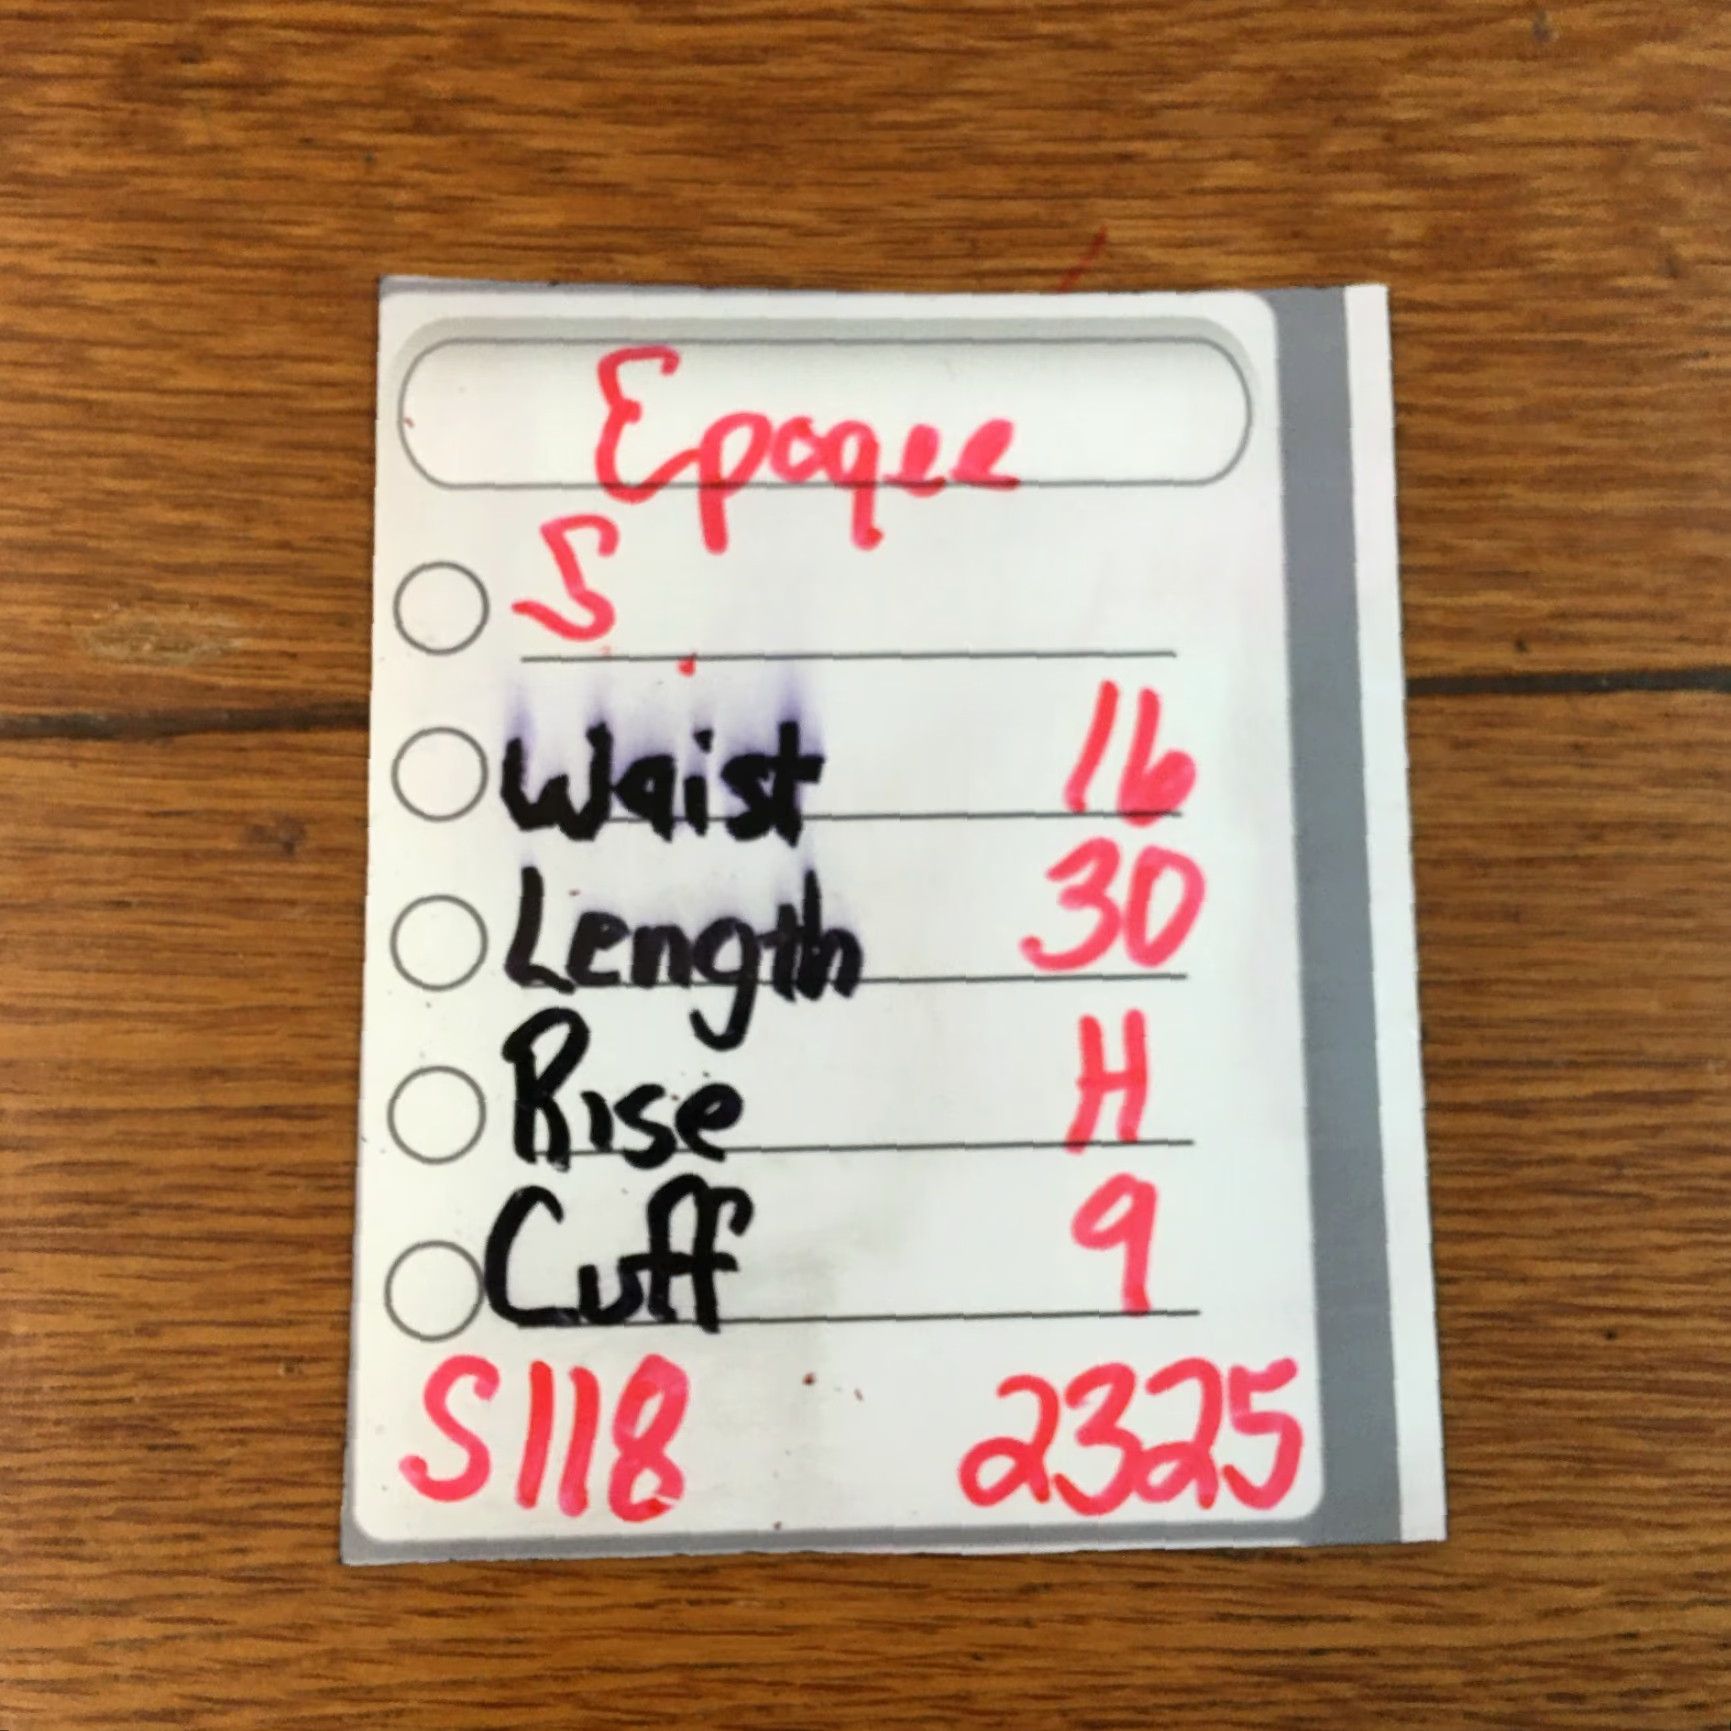 Epoque
S
Waist 16
Length 30
Rise H
Cuff 9
S118 2325